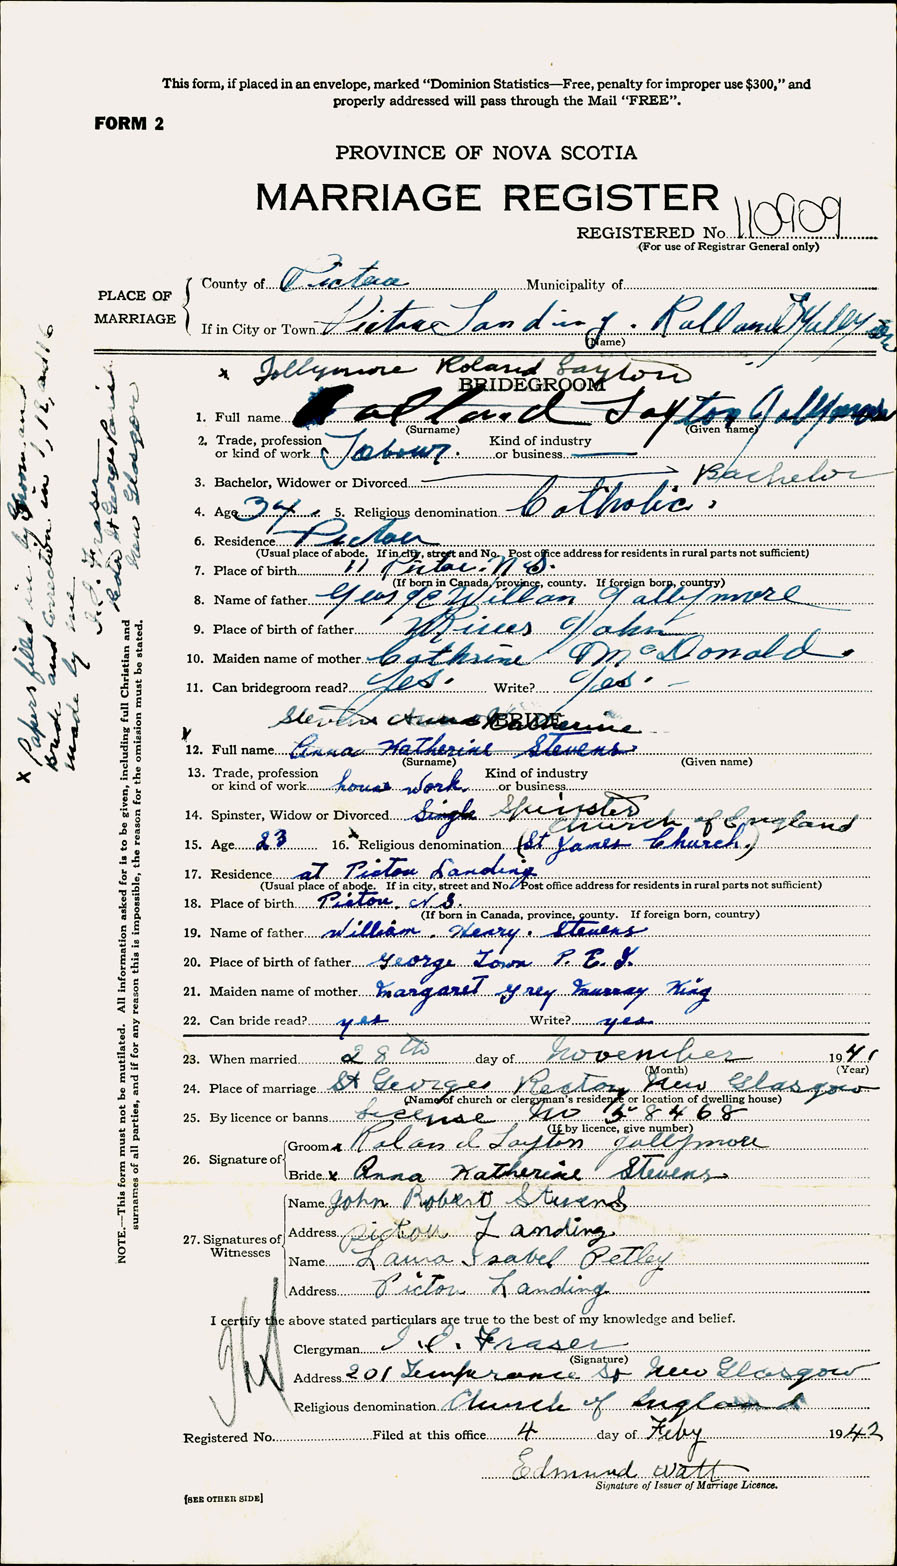 This form, if placed in an envelope, marked “Dominion Statistics—Free, penalty for improper use $300,” and
properly addressed will pass through the Mail “FREE”.
FORM 2
PROVINCE OF NOVA SCOTIA
MARRIAGE REGISTER
REGISTERED No. 110909
(For use of Registrar General only)
PLACE OF MARRIAGE
County of Pictou Municipality of
If in City or Town Pictou Landing.
(Name)
x Jollymore Roland Layton
BRIDEGROOM
1. Full name Layton Jollymore
(Surname) (Given name)
2. Trade, profession or kind of work Kind of industry or business
3. Bachelor, Widower or Divorced Bachelor
4. Age 34. 5. Religious denomination Catholic.
6. Residence Pictou
(Usual place of abode. If in city, street and No. Post office address for residents in rural parts not sufficient)
7. Place of birth Pictou. N.S.
(If born in Canada, province, county. If foreign born, country)
8. Name of father George Jollymore
9. Place of birth of father River John
10. Maiden name of mother Cathrine McDonald.
11. Can bridegroom read? Yes. Write? Yes.
Stevens Anna Katherine
BRIDE
12. Full name Anna Katherine Stevens
(Surname) (Given name)
13. Trade, profession or kind of work house work Kind of industry or business
14. Spinster, Widow or Divorced Single Spinster
Church of England
15. Age 23 16. x Religious denomination (St James Church.)
17. Residence at Pictou Landing
(Usual place of abode. If in city, street and No. Post office address for residents in rural parts not sufficient)
18. Place of birth Pictou, N.S.
(If born in Canada, province, county. If foreign born, country)
19. Name of father William. Henry. Stevens
20. Place of birth of father George Town P.E.I.
21. Maiden name of mother Margaret Grey Murray King
22. Can bride read? yes Write? yes
23. When married 28th day of November 1941
(Month) (Year)
24. Place of marriage St Georges Rectory New Glasgow
(Name of church or clergyman's residence or location of dwelling house)
25. By licence or banns license No 58468
(If by licence, give number)
26. Signature of
Groom x Roland Layton Jollymore
Bride x Anna Katherine Stevens
27. Signatures of Witnesses
Name John Robert Stevens
Address Pictou Landing
Name Laura Isabel Petley
Address Pictou Landing
I certify the above stated particulars are true to the best of my knowledge and belief.
Clergyman Fraser
(Signature)
Address 201 Temperance St New Glasgow
Religious denomination Church of England
Registered No. Filed at this office 4 day of Feby 1942
Edmund Watt
Signature of Issuer of Marriage Licence.
[SEE OTHER SIDE]
NOTE.—This form must not be mutilated. All information asked for is to be given, including full Christian and
surnames of all parties, and if for any reason this is impossible, the reason for the omission must be stated.
x Papers filled in by Groom and
Bride and correction in 1, 12, and 16
made by me
Fraser
Rector St Georges Parish
New Glasgow